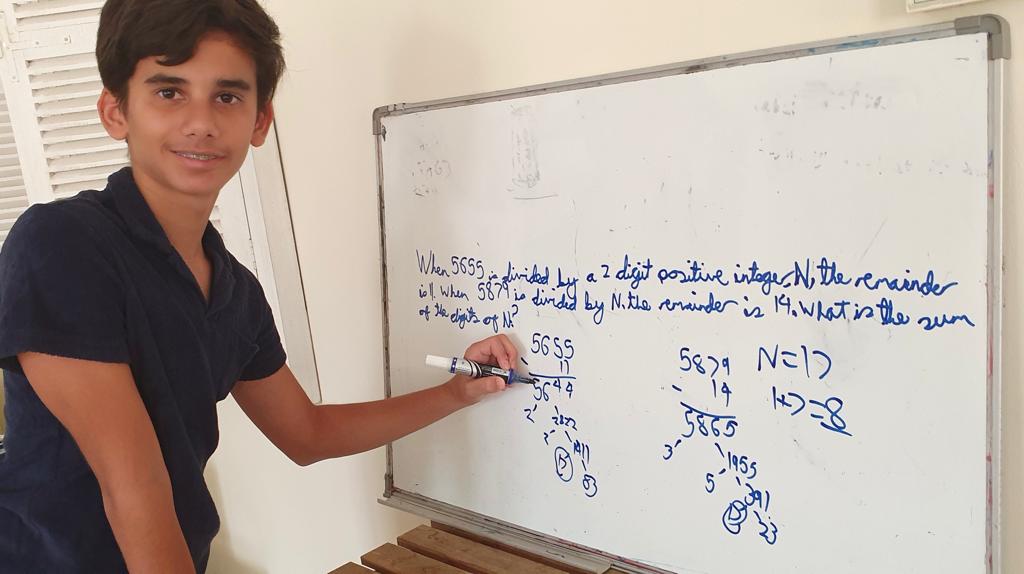 When 5655 is divided by a 2 digit positive integer, N, the remainder
is 11. When 5879 is divided by N. the remainder is 14. What is the sum
of the digits of N?
5655
- 11
5644
2 2822
2 1411
17
83
5879
- 14
5865
3 1955
5 391
17 23
N=17
1+7=8